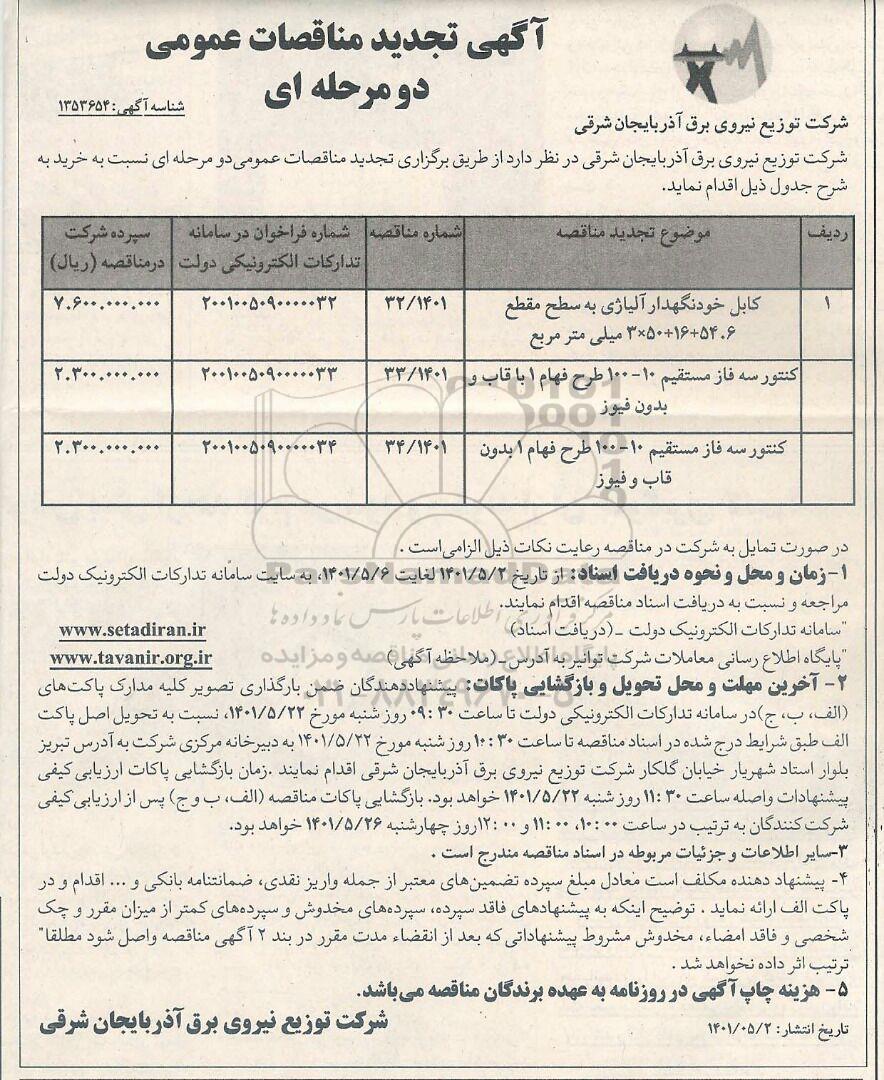 آگهی تجدید مناقصات عمومی
دو مرحله ای
شناسه آگهی: ۱۳۵۳۶۵۴
شرکت توزیع نیروی برق آذربایجان شرقی
شرکت توزیع نیروی برق آذربایجان شرقی در نظر دارد از طریق برگزاری تجدید مناقصات عمومی دو مرحله ای نسبت به خرید به
شرح جدول ذیل اقدام نماید.
ردیف موضوع تجدید مناقصه شماره مناقصه شماره فراخوان در سامانه سپرده شرکت
تدارکات الکترونیکی دولت درمناقصه (ریال)
۱ کابل خودنگهدار آلیاژی به سطح مقطع ۳۲/۱۴۰۱ ۲۰۰۱۰۰۵۰۹۰۰۰۰۰۳۲ ۷.۶۰۰.۰۰۰.۰۰۰
۳×۵۰+۱۶+۵۴.۶ میلی متر مربع
کنتور سه فاز مستقیم ۱۰-۱۰۰ طرح فهام ۱ با قاب و ۳۳/۱۴۰۱ ۲۰۰۱۰۰۵۰۹۰۰۰۰۰۳۳ ۲.۳۰۰.۰۰۰.۰۰۰
بدون فیوز
کنتور سه فاز مستقیم ۱۰-۱۰۰ طرح فهام ۱ بدون ۳۴/۱۴۰۱ ۲۰۰۱۰۰۵۰۹۰۰۰۰۰۳۴ ۲.۳۰۰.۰۰۰.۰۰۰
قاب و فیوز
در صورت تمایل به شرکت در مناقصه رعایت نکات ذیل الزامی است .
۱-زمان و محل و نحوه دریافت اسناد: از تاریخ ۱۴۰۱/۵/۲ لغایت ۱۴۰۱/۵/۶، به سایت سامانه تدارکات الکترونیک دولت
مراجعه و نسبت به دریافت اسناد مناقصه اقدام نمایند.
"سامانه تدارکات الکترونیک دولت -(دریافت اسناد) www.setadiran.ir
"پایگاه اطلاع رسانی معاملات شرکت توانیر به آدرس-(ملاحظه آگهی) www.tavanir.org.ir
۲- آخرین مهلت و محل تحویل و بازگشایی پاکات: پیشنهاددهندگان ضمن بارگذاری تصویر کلیه مدارک پاکت‌های
(الف، ب، ج)در سامانه تدارکات الکترونیکی دولت تا ساعت ۰۹:۳۰ روز شنبه مورخ ۱۴۰۱/۵/۲۲، نسبت به تحویل اصل پاکت
الف طبق شرایط درج شده در اسناد مناقصه تا ساعت ۱۰:۳۰ روز شنبه مورخ ۱۴۰۱/۵/۲۲ به دبیرخانه مرکزی شرکت به آدرس تبریز
بلوار استاد شهریار خیابان گلکار شرکت توزیع نیروی برق آذربایجان شرقی اقدام نمایند .زمان بازگشایی پاکات ارزیابی کیفی
پیشنهادات واصله ساعت ۱۱:۳۰ روز شنبه ۱۴۰۱/۵/۲۲ خواهد بود. بازگشایی پاکات مناقصه (الف، ب و ج) پس از ارزیابی کیفی
شرکت کنندگان به ترتیب در ساعت ۱۰:۰۰، ۱۱:۰۰ و ۱۲:۰۰روز چهارشنبه ۱۴۰۱/۵/۲۶ خواهد بود.
۳-سایر اطلاعات و جزئیات مربوطه در اسناد مناقصه مندرج است .
۴- پیشنهاد دهنده مکلف است معادل مبلغ سپرده تضمین‌های معتبر از جمله واریز نقدی، ضمانتنامه بانکی و ... اقدام و در
پاکت الف ارائه نماید . توضیح اینکه به پیشنهادهای فاقد سپرده، سپرده‌های مخدوش و سپرده‌های کمتر از میزان مقرر و چک
شخصی و فاقد امضاء، مخدوش مشروط پیشنهاداتی که بعد از انقضاء مدت مقرر در بند ۲ آگهی مناقصه واصل شود مطلقا"
ترتیب اثر داده نخواهد شد .
۵- هزینه چاپ آگهی در روزنامه به عهده برندگان مناقصه می‌باشد.
شرکت توزیع نیروی برق آذربایجان شرقی
تاریخ انتشار: ۱۴۰۱/۰۵/۲